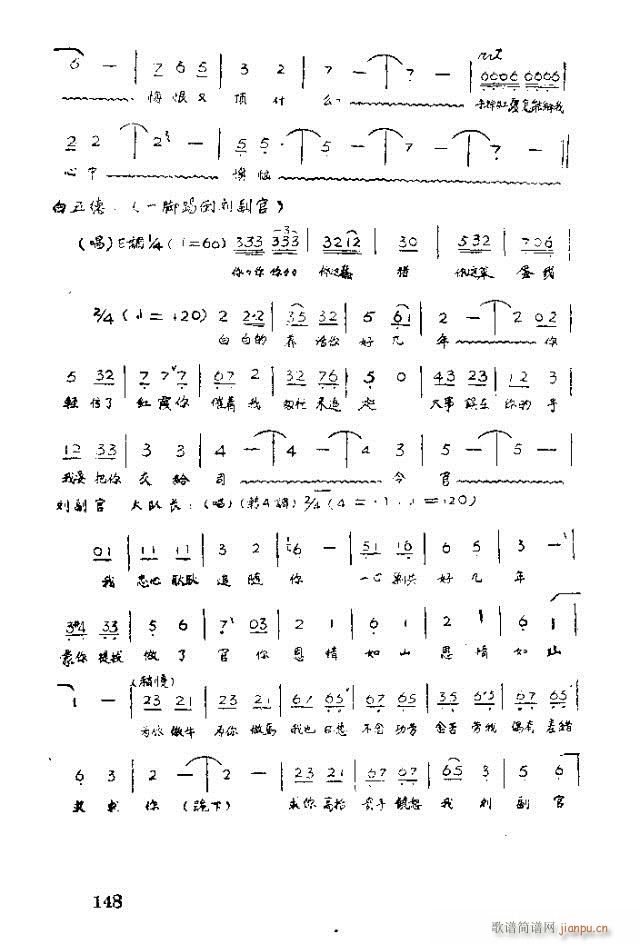 6 — | 7 6 5 | 3 2 | 7 — | 7 — | 6606 6606
悔恨又 顶什么
2 2 — | 2 | 5 5 · | 5 — | 7 — | 7 — ‖
心中 懊恼
白正德:(一脚踢倒刘副官)
(唱)E调1/4(♩=60) 333 333 | 3212 | 30 | 532 | 706 |
你你你你 你这蠢 猪 你这笨 蛋我
2/4(♩=120) 2 2·2 | 35 32 | 5 61 | 2 — | 2 02 |
白白的 养活你 好几 年 你
5 32 | 7 7 7 | 67 2 | 32 76 | 5 0 | 43 23 | 12 3 |
轻信了 红霞你 催着我 匆忙来追赶 大事误在 你的手
12 33 | 3 3 | 4 — | 4 — | 4 3 | 5 — | 5 — ‖
我要把你 交给司 令官
刘副官 大队长:(唱)(转A调)2/4(4=1 ♩=120)
01 | 11 11 | 3 2 | 6 — | 51 16 | 6 5 | 3 — |
我 忠心耿耿 追随你 一心剿共 好几年
3#4 33 | 5 6 | 7 03 | 2 1 | 6 1 | 2 1 | 6 1
靠你提拔 做了官你 恩情如山 恩情如山
(稍慢)
1 — | 23 21 | 23 21 | 67 65 | 67 65 | 35 65 | 67 65 |
为你做牛 为你做马 我也日想 不念功劳 念苦劳我 偶有差错
6 3 | 2 — | 2 — | 23 21 | 67 65 | 65 3 | 5 6
求求你(跪下) 求你高抬 贵手饶恕 我刘副官
148
歌谱简谱网
jianpu.cn